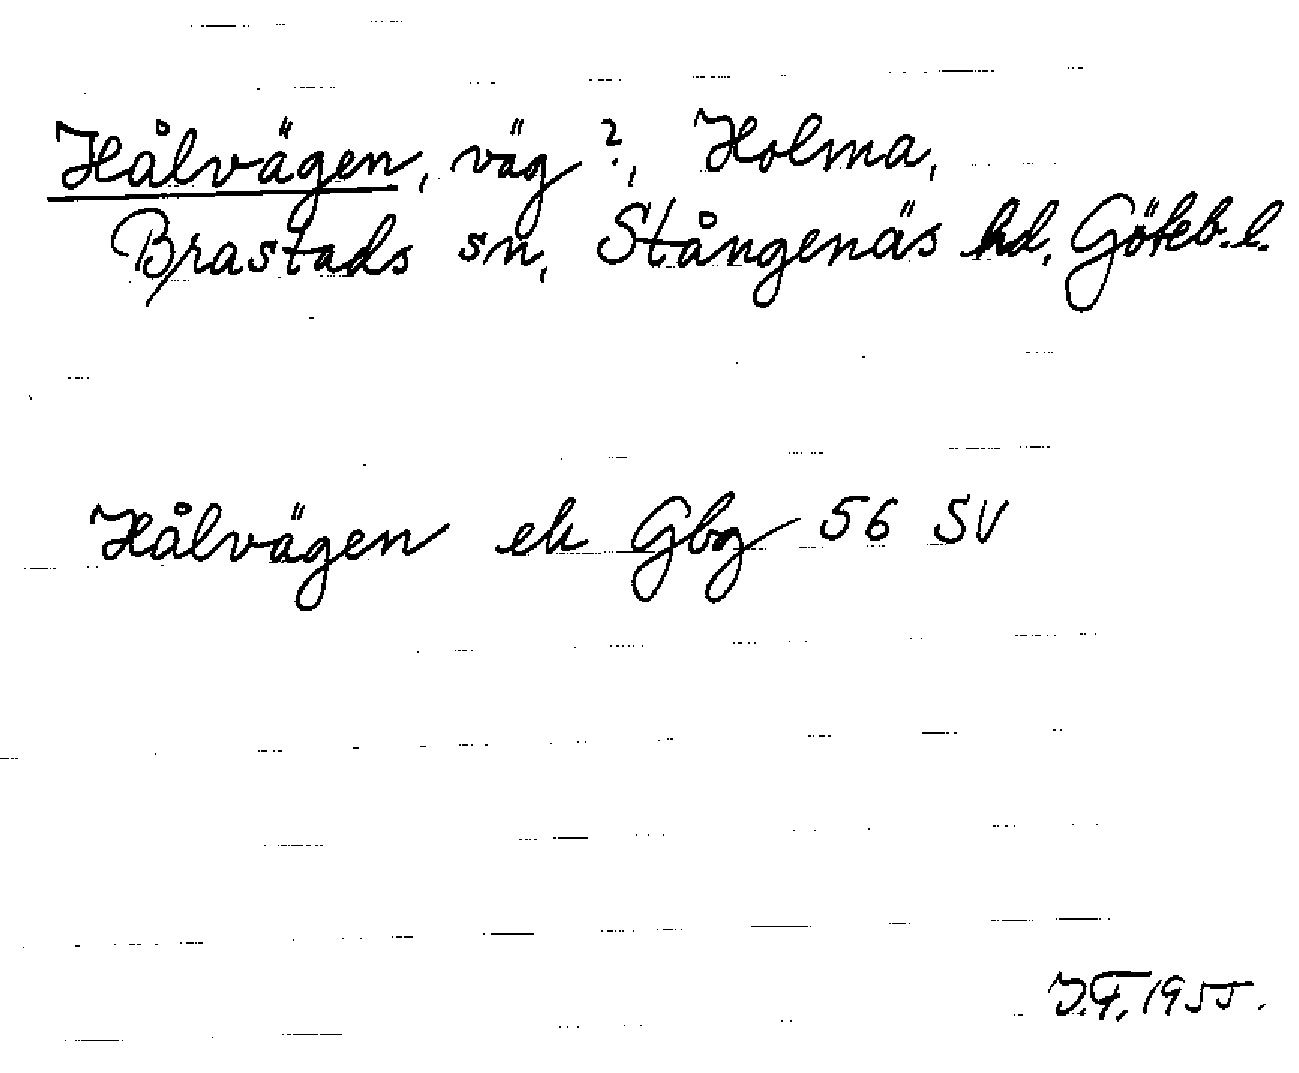 Hålvägen, väg?, Holma,
Brastads sn, Stångenäs hd, Göteb.l.
Hålvägen ek Gbg 56 SV
J.F. 1955.